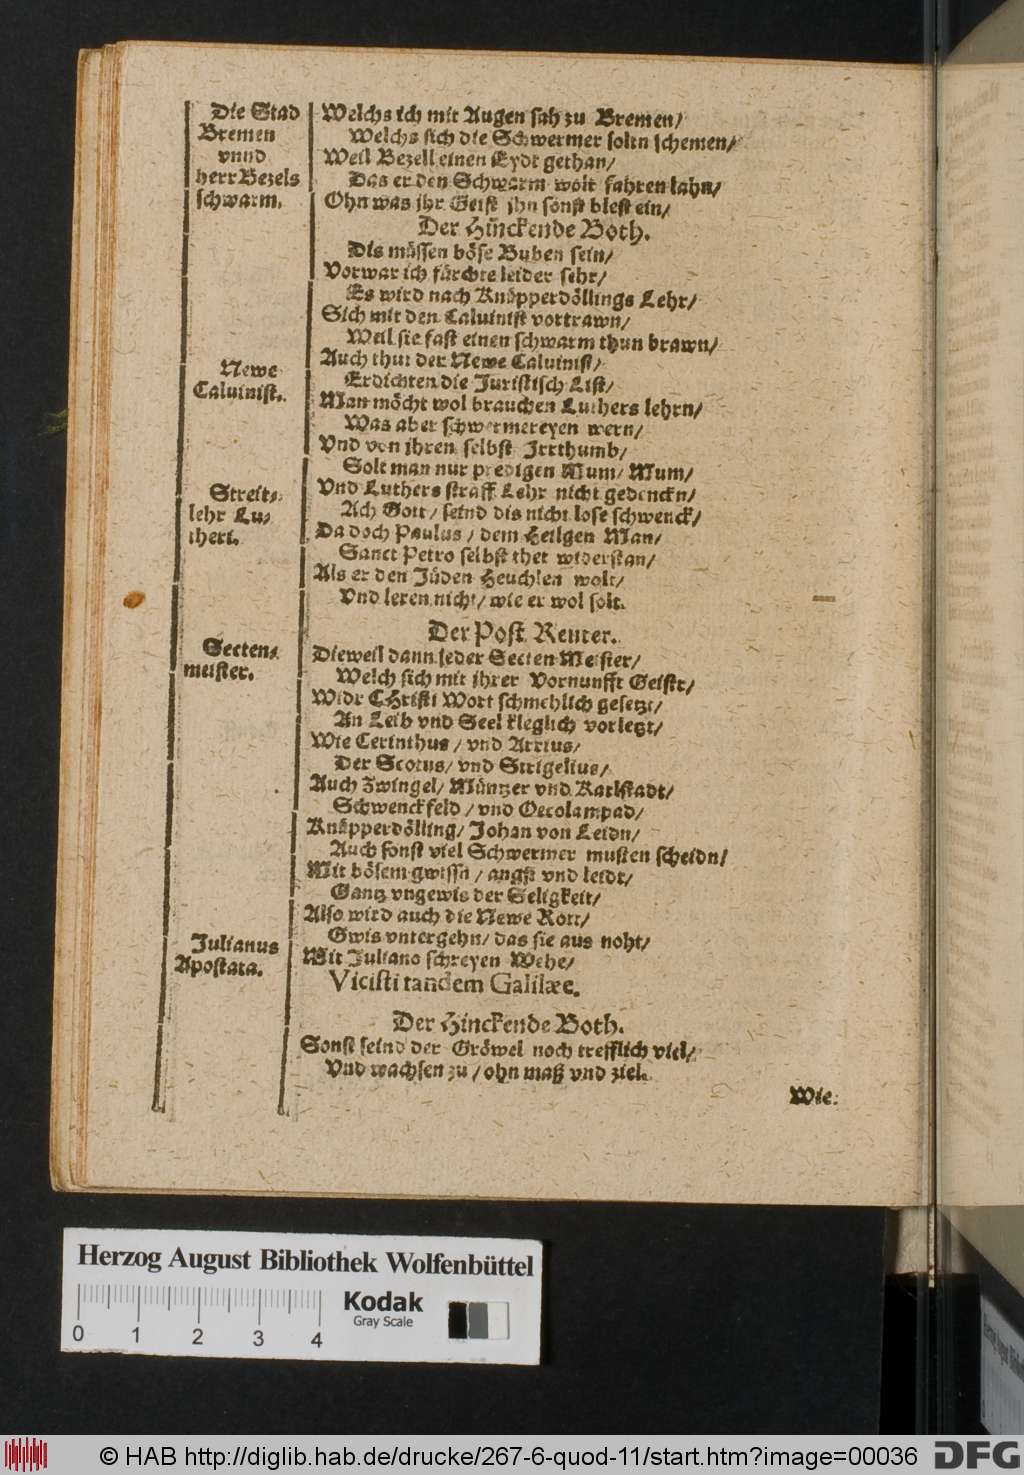 Die Stad
Bremen
vnnd
herr Bezels
schwarm.
Welchs ich mit Augen sah zu Bremen/
Welchs sich die Schwermer soltn schemen/
Weil Bezell einen Eydt gethan/
Das er den Schwarm wolt fahren lahn/
Ohn was ihr Geist ihn sonst blest ein/
Der Hinckende Both.
Dis müssen böse Buben sein/
Vorwar ich fürchte leider sehr/
Es wird nach Knüpperdöllings Lehr/
Sich mit den Caluinist vortrawn/
Weil sie fast einen schwarm thun brawn/
Newe
Caluinist.
Auch thut der Newe Caluinist/
Erdichten die Juristisch List/
Man möcht wol brauchen Luthers lehrn/
Was aber schwermereyen wern/
Vnd von ihren selbst Irrthumb/
Solt man nur predigen Mum/ Mum/
Streit-
lehr Lu-
theri.
Vnd Luthers straff Lehr nicht gedenckn/
Ach Gott/ seind dis nicht lose schwenck/
Da doch Paulus/ dem Heilgen Man/
Sanct Petro selbst thet widerstan/
Als er den Jüden Heuchlen wolt/
Vnd leren nicht/ wie er wol solt.
Der Post Reuter.
Secten-
meister.
Dieweil dann jeder Secten Meister/
Welch sich mit ihrer Vornunfft Geistr/
Widr CHristi Wort schmehlich gesetzt/
An Leib vnd Seel kleglich vorletzt/
Wie Cerinthus/ vnd Arrius/
Der Scotus/ vnd Strigelius/
Auch Zwingel/ Müntzer vnd Karlstadt/
Schwenckfeld/ vnd Oecolampad/
Knüpperdölling/ Johan von Leidn/
Auch sonst viel Schwermer musten scheidn/
Mit bösem gwissn/ angst vnd leidt/
Gantz vngewis der Seligkeit/
Also wird auch die Newe Rott/
Gwis vntergehn/ das sie aus noht/
Julianus
Apostata.
Mit Juliano schreyen Wehe/
Vicisti tandem Galilæe.
Der Hinckende Both.
Sonst seind der Gröwel noch trefflich viel/
Vnd wachsen zu/ ohn maß vnd ziel.
Wie
Herzog August Bibliothek Wolfenbüttel
0 1 2 3 4
Kodak
Gray Scale
© HAB http://diglib.hab.de/drucke/267-6-quod-11/start.htm?image=00036
DFG